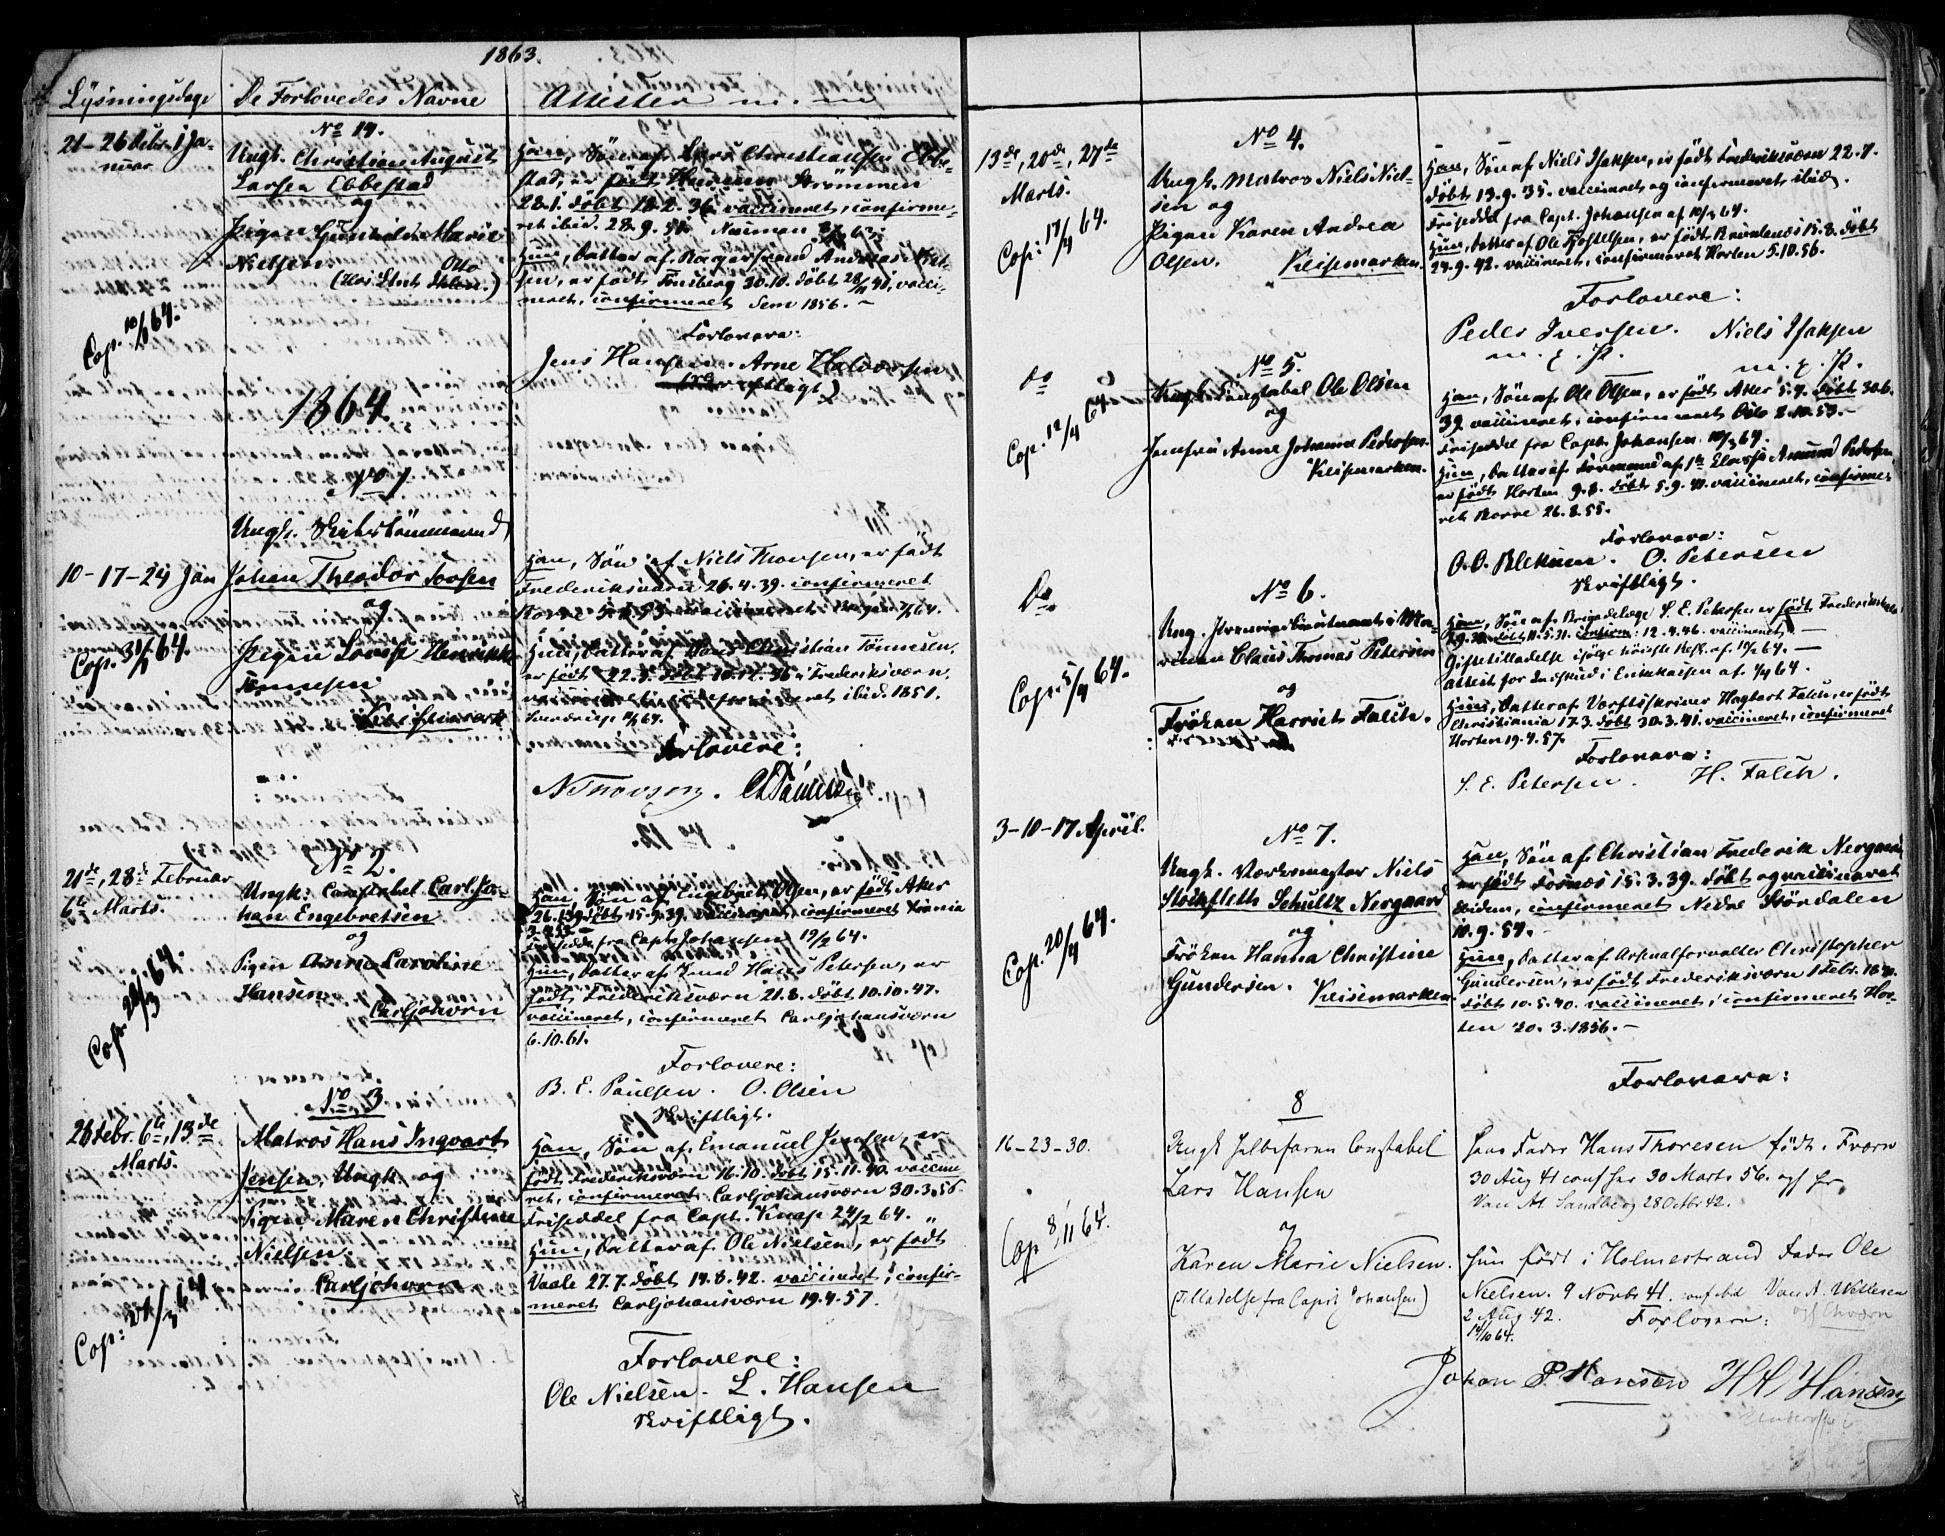 1863.
Lysningsdage
De Forlovedes Navne
Attester m. m.
21-26 Debr. 1 Ja-
nuar
No 14.
Ungk. Christian August
Larsen Ebbestad
og
Pigen Gunhild Marie
Nielsen.
Cop. 10/1 64.
Han, Søn af Lars Christiansen Ebbe-
stad, er født Strømmen
28.1. døbt 18.2.36 vaccineret, confirme-
ret ibid. 28.9.51.
Hun, Datter af Andreas Niel-
sen, er født Tønsberg 30.10. døbt 28/11 41, vacci-
neret, confirmeret Sem 1856. -
Forlovere:
Jens Hansen. Arne Halvorsen
(skriftligt)
1864.
No 1
Ungk. Skibstømmermand
10-17-24 Jan
Johan Theodor Torsen
og
Pigen Lovise Henrikke
Tønnesen
Cop. 31/1 64.
Han, Søn af Niels Thorsen, er født
Frederiksværn 26.4.39. confirmeret
Borre
Hun, Datter af Hans Christian Tønnesen,
er født 22.5. døbt 10.12.36 i Frederiksværn,
confirmeret ibid. 1851.
Forlovere:
N Thorsen.
21de, 28de Februar
6te Marts.
No 2.
Ungk. Constabel Carl Jo-
han Engebretsen
og
Pigen Anne Caroline
Hansen
Carljohvern
Cop. 28/3 64.
Han, Søn af Engebret Olsen, er født Aker
26.1.39 døbt 15.9.39. vaccineret, confirmeret Xrania
Friseddel fra Capt. Johansen 19/2 64.
Hun, Datter af Hans Petersen, er
født Frederiksværn 21.8. døbt 10.10.47.
vaccineret, confirmeret Carljohansværn
6.10.61.
Forlovere:
B. E. Paulsen. O. Olsen
Skriftligt.
28 Febr. 6te, 13de
Marts.
No 3
Matros Hans Ingvart
Jensen, Ungk. og
Pigen Maren Christine
Nielsen.
Carljohvern
Cop: 28/3 64
Han, Søn af Emanuel Jensen, er
født Frederiksværn 16.10. døbt 15.11.40. vaccine
ret, confirmeret Carljohansværn 30.3.56.
Friseddel fra Capt. Knap 24/2 64.
Hun, Datter af Ole Nielsen, er født
Vaale 27.7. døbt 14.8.42. vaccineret, confir-
meret Carljohansværn 19.4.57.
Forlovere:
Ole Nielsen. L. Hansen
Skriftligt.
13de, 20de, 27de
Marts.
No 4.
Ungk. Matros Niels Niel-
sen og
Pigen Karen Andrea
Olsen. Keisemarken.
Cop: 17/4 64.
Han, Søn af Niels Isaksen, er født Frederiksværn 22.7.
døbt 13.9.35. vaccineret og confirmeret ibid.
Friseddel fra Capt. Johansen af 10/3 64.
Hun, Datter af Ole Kjostelsen, er født 15.8. døbt
24.9.42. vaccineret, confirmeret Horten 5.10.56.
Forlovere:
Peder Iversen. Niels Isaksen
m. f. P. m. f. P.
do
No 5.
Ungk. Constabel Ole Olsen
og
Jomfru Anne Johanne Pedersen.
Keisemarken.
Cop. 12/4 64
Han, Søn af Ole Olsen, er født Aker 5.4. døbt 30.6.
39. vaccineret, confirmeret Oslo 2.10.53.-
Friseddel fra Capt. Johansen 10/3 64.
Hun, Datter af Formand af 1ste Classe Amund Pedersen
er født Horten 9.8. døbt 5.9.41. vaccineret, confirme-
ret Borre 26.8.55.
Forlovere:
O. O. Blekum. O. Petersen
Skriftligt.
Do
No 6.
Ung. Premierlieutenant i Ma-
rinen Claus Thomas Petersen
og
Frøken Harriet Falch.
Cop. 5/4 64.
Han, Søn af Brigadelæge S. E. Petersen er født Frederikshald
døbt 11.5.31. confirm: 12.4.46. vaccineret -
Giftetilladelse ifølge høieste Res. af 19/2 64. -
Attest for Indskud i Enkekassen af 1/4 64.
Hun, Datter af Værftsskriver Hagbart Falch, er født
Christiania 17.3. døbt 30.3.41. vaccineret, confirmeret
Horten 19.4.57.
Forlovere:
S. E. Petersen. H. Falch.
3-10-17 April.
No 7.
Ungk. Værksmester Niels
Stockfleth Schultz Nergaard
og
Frøken Hanna Christine
Gundersen. Keisemarken
Cop. 20/4 64.
Han, Søn af Christian Frederik Nergaard
er født Fosnæs 15.3.39. døbt og vaccineret
ibidem, confirmeret Nedre Stördalen
10.9.54.-
Hun, Datter af Arsenalforvalter Christopher
Gundersen, er født Frederiksværn 1 Febr. 1840.
døbt 10.5.40. vaccineret, confirmeret Hor-
ten 20.3.1856.-
Forlovere:
8
16-23-30.
Ungk Constabel
Lars Hansen
og
Karen Marie Nielsen.
(Tilladelse fra Capt Johansen)
Cop 8/11 64.
Hans Fader Hans Thoresen født i Fværn
30 Aug 41 conf her 30 Marts 56.
Vac. At Sandberg 28 Octbr 42.
Hun født i Holmestrand Fader Ole
Nielsen. 9 Novbr 41. conf ibd Vac. A. Willesen
2 Aug 42. Forlovere:
14/10 64.
Johan P. Hansen H H Hansen